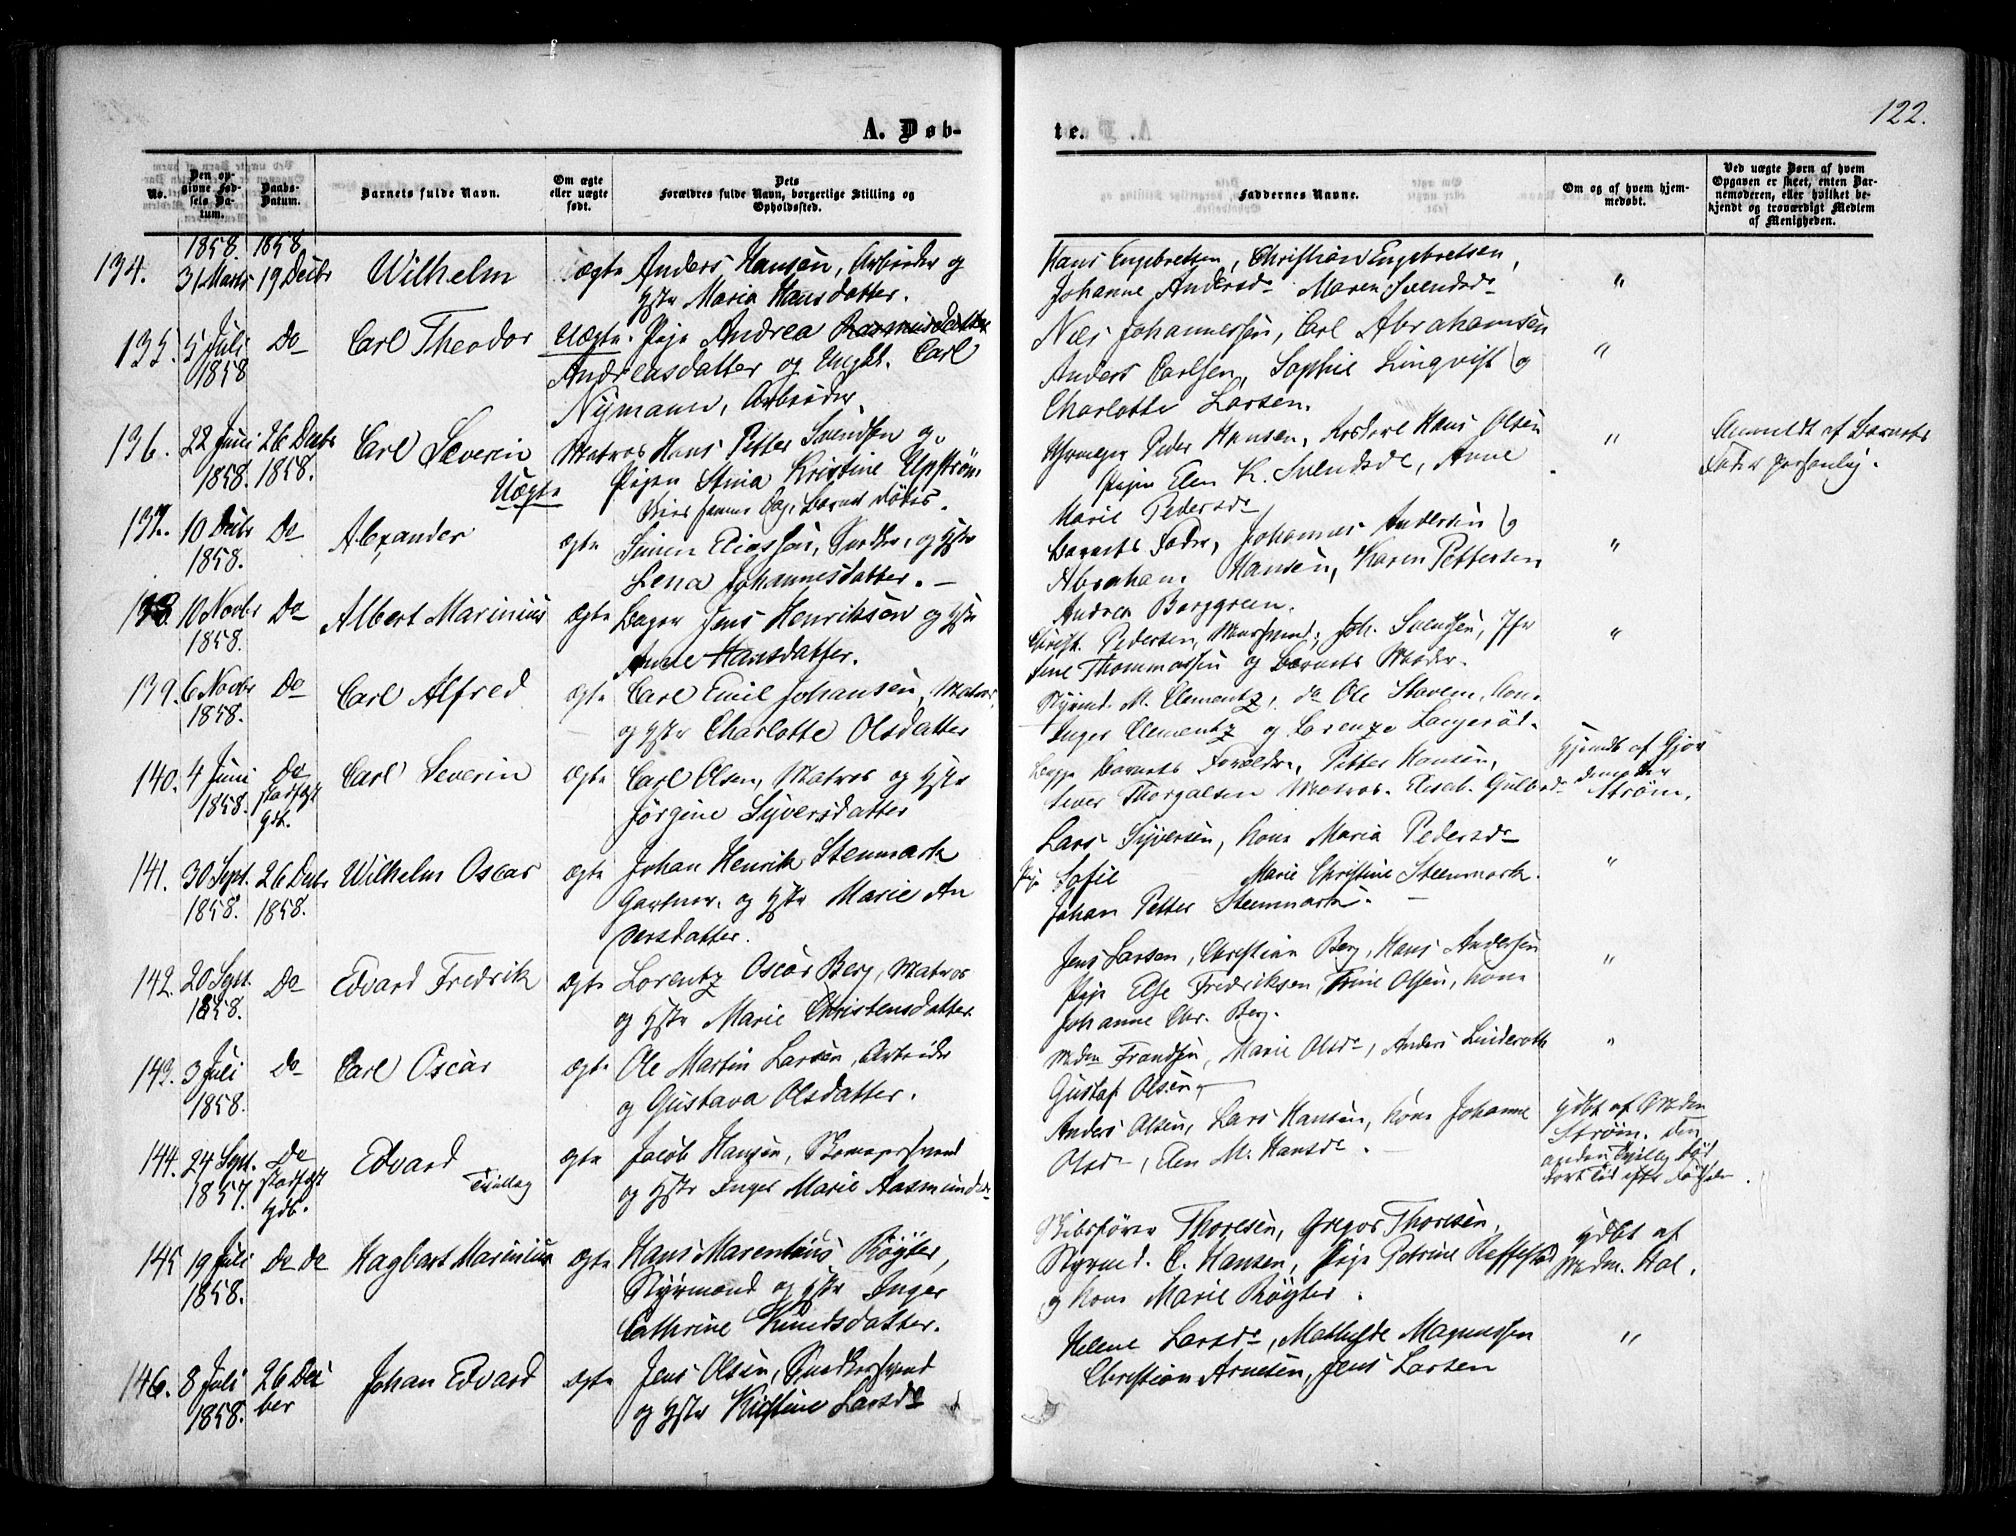 122.
A. Døb-
te.
No.
Den op-
givne Fød-
sels Da-
tum.
Daabs-
Datum.
Barnets fulde Navn.
Om ægte
eller uægte
født.
Dets
Forældres fulde Navn, borgerlige Stilling og
Opholdssted.
Faddernes Navne.
Om og af hvem hjem-
medøbt.
Ved uægte Børn af hvem
Opgaven er skeet, enten Bar-
nemoderen, eller hvilket be-
kjendt og troværdigt Medlem
af Menigheden.
1858 1858
134. 31 Marts 19 Decbr Wilhelm ægte Anders Hansen, Arbeider og
Hstr Maria Hansdatter.
Hans Engebretsen, Christian Engebretsen,
Johanne Andersdr Maren Svendsdr "
135. 5 Juli 1858 Do Carl Theodor Uægte. Pige Andrea Rasmusdatter
Andreasdatter og Ungkl. Carl
Nymann, Arbeider
Nils Johannessen, Carl Abrahamsen
Anders Carlsen, Sophie Linqvist og
Charlotte Larsen. "
136. 22 Juni 1858. 26 Decbr 1858. Carl Severin Uægte Matros Hans Petter Svendsen og
Pigen Stina Kristine Upström
Peder Hansen, Hans Olsen
Pigen Elen K. Svendsdr, Anne
Marie Pedersdr "
Anmeldt af Barnets
Fader personlig.
137. 10 Decbr 1858. Do Alexander ægte Simen Eliassen, Snedker, og Hstr
Lena Johannesdatter. —
Barnets Fader, Johannes Andersen og
Abraham Hansen, Karen Pettersen
Andrea Borggreen. "
138. 10 Novbr 1858. Do Albert Marinius ægte Bager Jens Henriksen og Hstr
Anne Hansdatter.
Christ. Pedersen, Joh. Svendsen, Jfr
Sine Thommassen og Barnets Moder. "
139. 6 Novbr 1858. Do Carl Alfred ægte Carl Emil Johansen, Matros,
og Hstr Charlotte Olsdatter
Styrmd. M. Clementz, do Ole Stavem, Kone
Inger Clementz og Lorenze Langerød.
140. 4 Juni 1858. Do stadfæst Hdb. Carl Severin ægte Carl Olsen, Matros og Hstr
Jörgine Syversdatter
Begge Barnets Forældre, Petter Hansen,
Siver Thorgalsen Matros. Elisab. Gulbrdr
Hjemdt af Gjor
demoder
Strøm.
141. 30 Sept. 1858. 26 Decbr 1858. Wilhelm Oscar ægte Johan Henrik Stenmark
Gartner. og Hstr Marie An
dersdatter.
Lars Syversen, Kone Maria Pedersdr
Pige Sofie Marie Christine Steenmark.
Johan Petter Steenmark. — "
142. 20 Sept. 1858. Do Edvard Fredrik ægte Lorentz Oscar Berg, Matros
og Hstr Marie Christensdatter
Jens Larsen, Christian Berg, Hans Andersen
Pige Else Fredriksen, Trine Olsen, Kone
Johanne Chr. Berg. "
143. 3 Juli 1858. Do Carl Oscar ægte Ole Martin Larsen, Arbeider
og Gustava Olsdatter.
Mdm Frandsen, Marie Olsdr, Anders Linderoth
Gustaf Olsen, — "
144. 24 Sept. 1857. Do stadfæst Hdb. Edvard Tvilling ægte Jacob Hansen, Skomagersvend
og Hstr Inger Marie Aasmundsdr
Anders Olsen, Lars Hansen, Kone Johanne
Olsdr, Elen M. Hansdr. —
Hdbt af Mdm
Strøm. Den
anden Tvilling død
kort tid efter Fødselen.
145 19 Juli 1858. Do Do Hagbart Marinius ægte Hans Marentius Röyter,
Styrmand og Hstr Inger
Cathrine Knudsdatter.
Skibsfører Thoresen, Gregor Thoresen,
Styrmd. C. Hansen, Pige Petrine Reffelstad
og Kone Marie Röyter.
Hdbt af
Mdm. Hol.
146. 8 Juli 1858. 26 Decber Johan Edvard ægte Jens Olsen, Snedkersvend
og Hstr Kirstine Larsdr
Helene Larsdr, Mathilde Magnussen
Christian Arnesen, Jens Larsen "